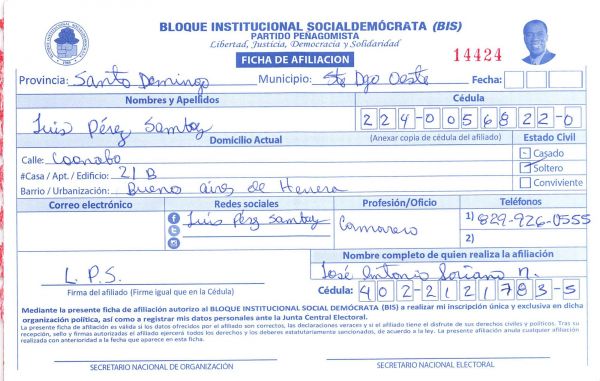 BLOQUE INSTITUCIONAL SOCIALDEMÓCRATA (BIS)
PARTIDO PEÑAGOMISTA
Libertad, Justicia, Democracia y Solidaridad
FICHA DE AFILIACION
14424
Provincia: Santo Domingo Municipio: Sto Dgo Oeste Fecha:
Nombres y Apellidos Cédula
Luis Pérez Samboy 224-0056822-0
Domicilio Actual (Anexar copia de cédula del afiliado) Estado Civil
Calle: Caonabo Casado
#Casa / Apt. / Edificio: 21 B Soltero
Barrio / Urbanización: Bueno aires de Herrera Conviviente
Correo electrónico Redes sociales Profesión/Oficio Teléfonos
Luis Pérez Samboy Camarero 1) 829-926-0555
2)
Nombre completo de quien realiza la afiliación
L.P.S. José Antonio Soriano n.
Firma del afiliado (Firme igual que en la Cédula) Cédula: 402-2121783-5
Mediante la presente ficha de afiliación autorizo al BLOQUE INSTITUCIONAL SOCIAL DEMÓCRATA (BIS) a realizar mi inscripción única y exclusiva en dicha
organización política, así como a registrar mis datos personales ante la Junta Central Electoral.
La presente ficha de afiliación es válida si los datos ofrecidos por el afiliado son correctos, las declaraciones veraces y si el afiliado tiene el disfrute de sus derechos civiles y políticos. Tras su
recepción, sello y firmas autorizadas el afiliado ejercerá todos los derechos y los deberes estatutariamente sancionados, de acuerdo a la ley. La presente afiliación anula cualquier afiliación
realizada con anterioridad a la fecha que aparece en esta ficha.
SECRETARIO NACIONAL DE ORGANIZACIÓN SECRETARIO NACIONAL ELECTORAL